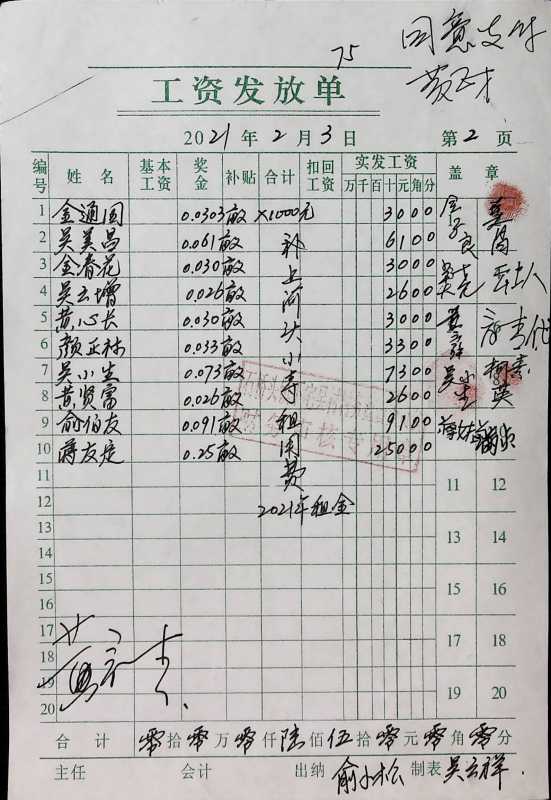 75
同意支付
工资发放单
2021年2月3日 第2页
编号 姓名 基本工资 奖金 补贴 合计 扣回工资 实发工资 万千百十元角分 盖章
1 金通国 0.0303亩 ×1000元 3000
2 吴美昌 0.061亩 6100
3 金春花 0.030亩 3000
4 吴云增 0.026亩 2600
5 黄心长 0.030亩 3000
6 颜正林 0.033亩 3300
7 吴小生 0.073亩 7300
8 黄贤富 0.026亩 2600
9 俞伯友 0.091亩 9100
10 蒋友定 0.25亩 25000
上河头小寺租用费
2021年租金
11
12
13
14
15
16
17
18
19
20
11 12
13 14
15 16
17 18
19 20
合计 零拾零万零仟陆佰伍拾零元零角零分
主任 会计 出纳 俞小松 制表 吴云祥